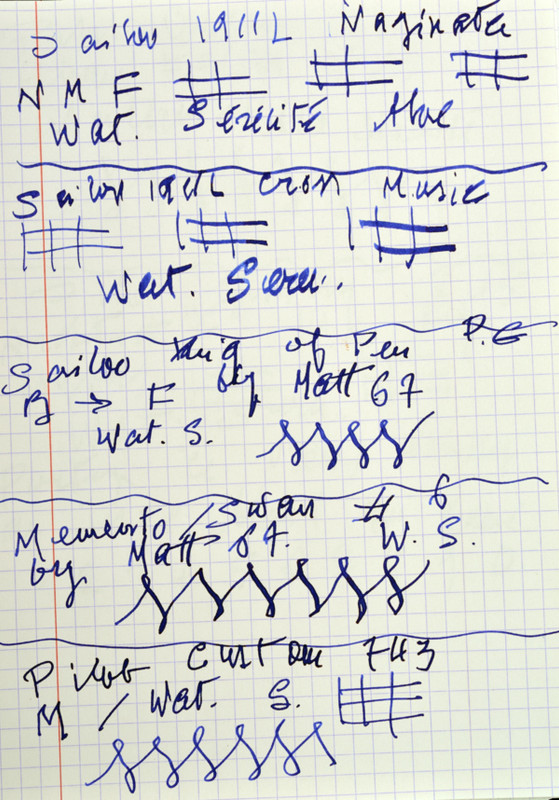 Sailor 1911L Naginata
N M F
Wat. Sérénité Aloe
Sailor 1911L Cross Music
Wat. Seren..
Sailor King of Pen P.G
B → F by Matt 67
Wat. S.
Memento / Swan # 6
by Matt 64. W. S.
Pilot Custom 743
M / Wat. S.